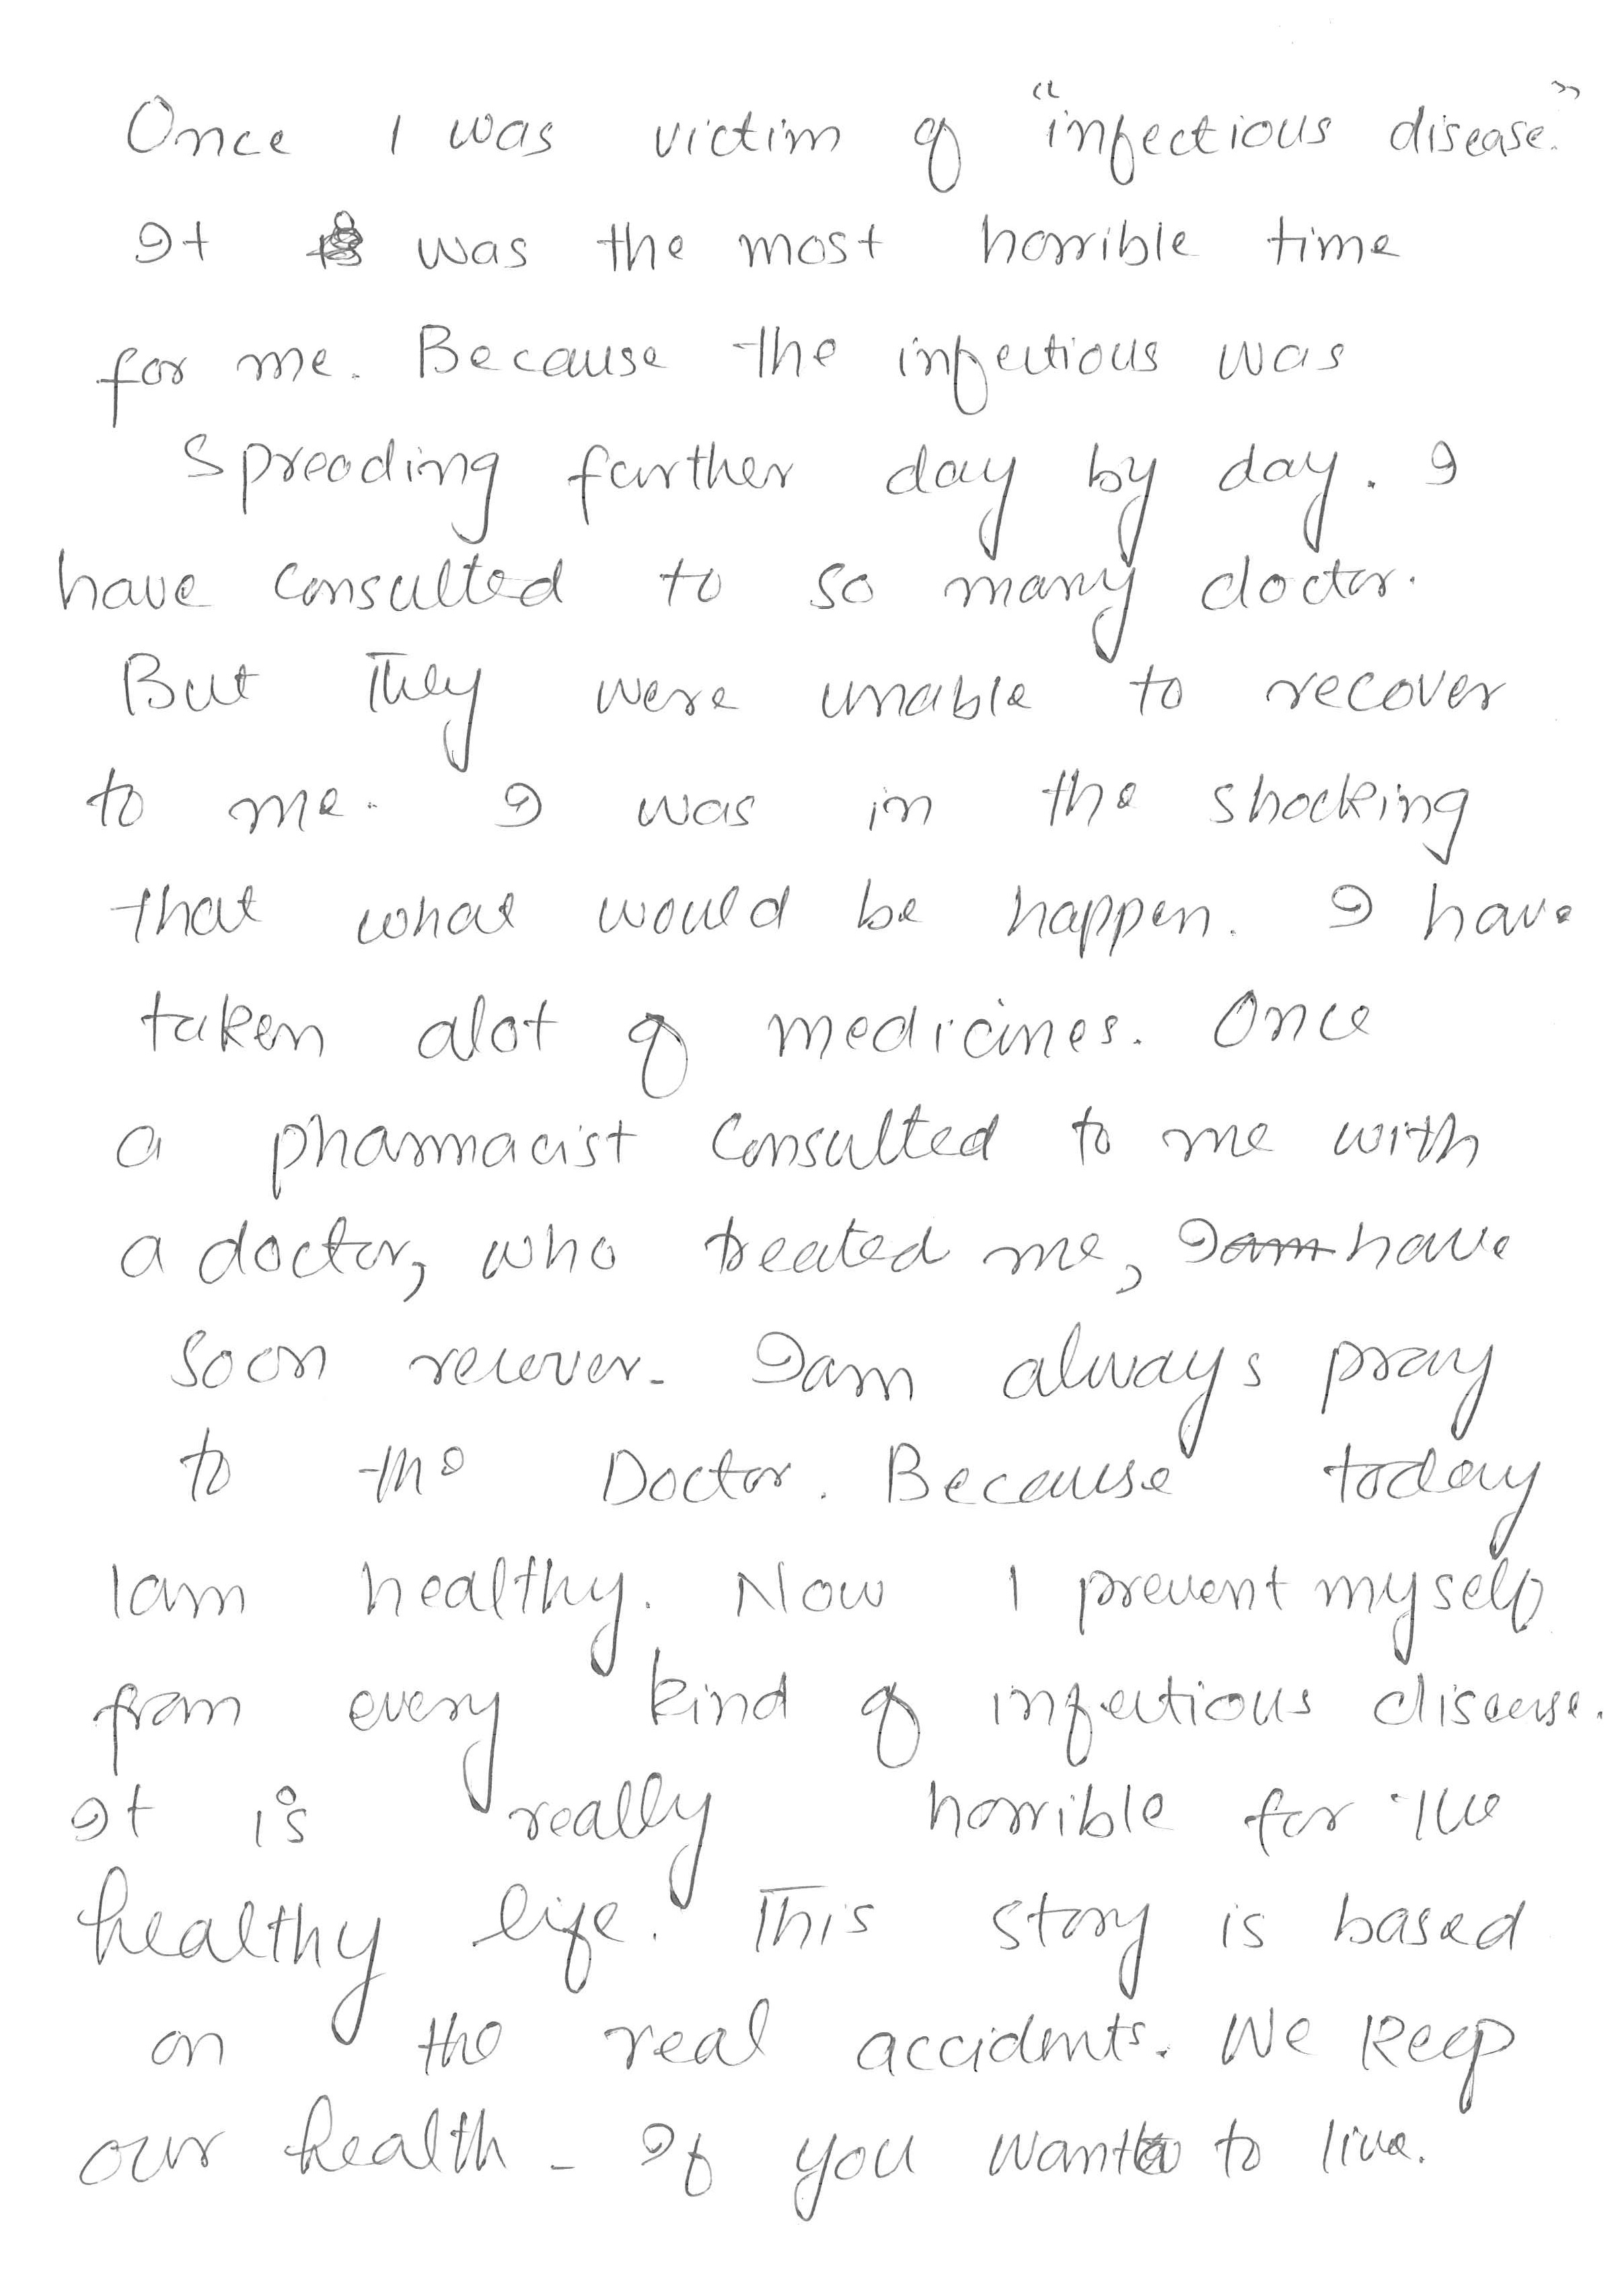 Once I was victim of "infectious disease."
It was the most horrible time
for me. Because the infectious was
spreading further day by day. I
have consulted to so many doctor.
But They were unable to recover
to me. I was in the shocking
that what would be happen. I have
taken alot of medicines. Once
a pharmacist consulted to me with
a doctor, who treated me, I am have
soon recover. Iam always pray
to the Doctor. Because today
Iam healthy. Now I prevent myself
from every kind of infectious disease.
It is really horrible for the
healthy life. This story is based
on the real accidents. We keep
our health - If you want to live.